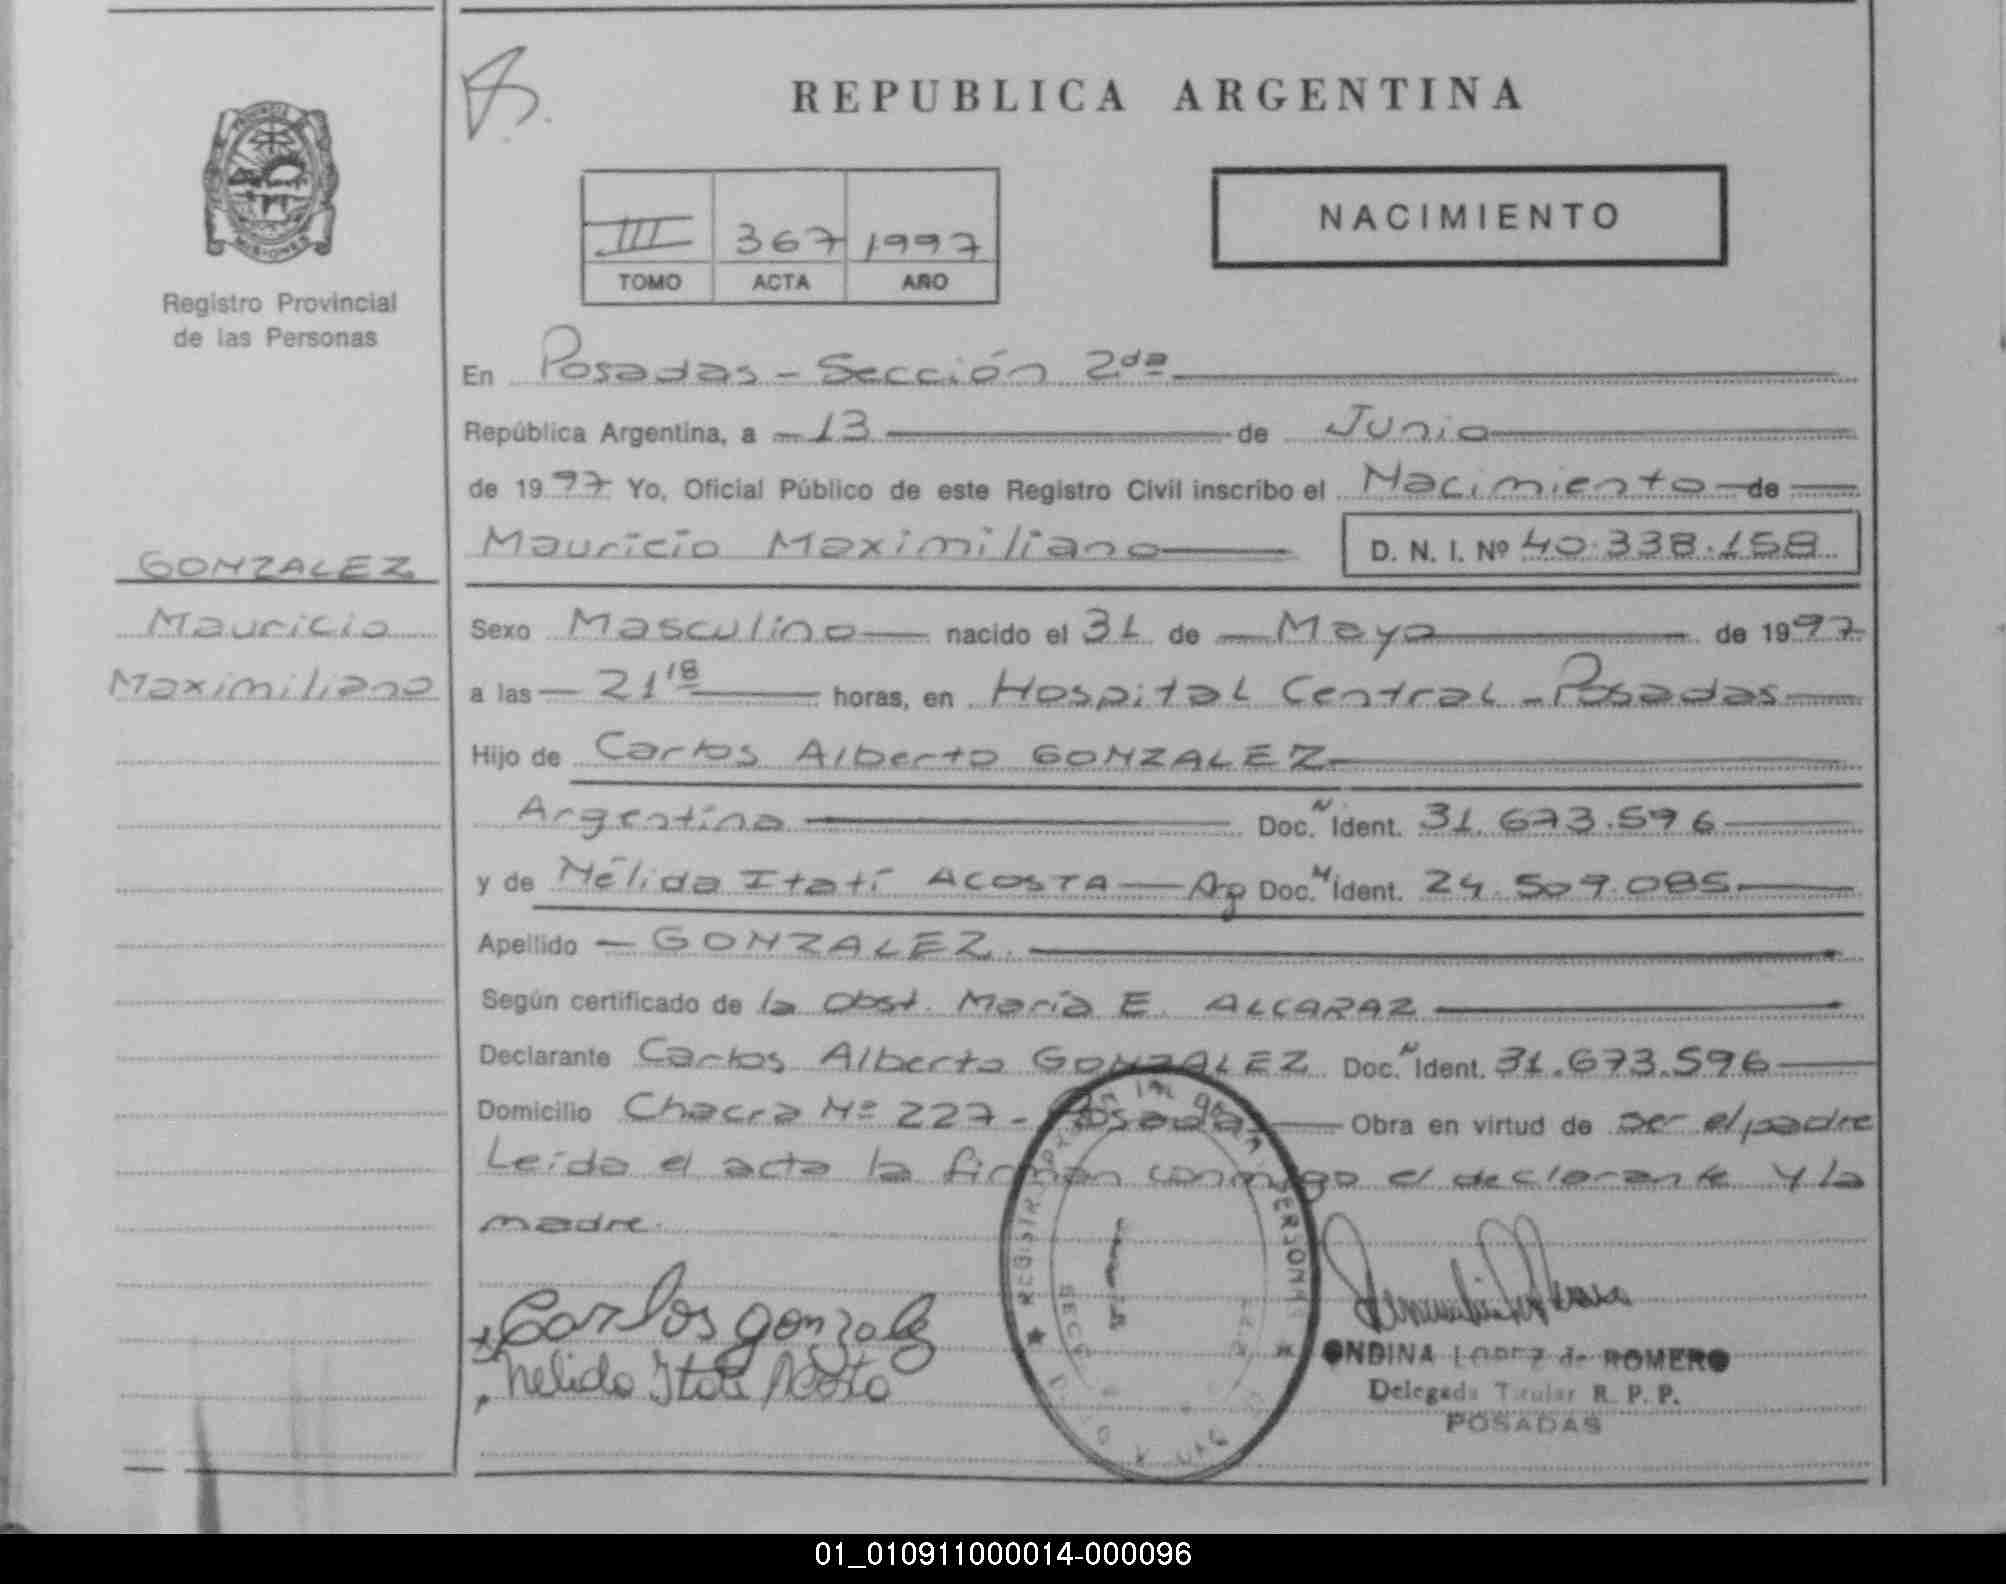 REPUBLICA ARGENTINA
PROVINCIA
MISIONES
Registro Provincial
de las Personas
III 367 1997
TOMO ACTA AÑO
NACIMIENTO
En Posadas - Sección 2da
República Argentina, a 13 de Junio
de 1997 Yo, Oficial Público de este Registro Civil inscribo el Nacimiento de
Mauricio Maximiliano D. N. I. Nº 40.338.158
GONZALEZ
Mauricio
Maximiliano
Sexo Masculino nacido el 31 de Mayo de 1997
a las 21 18 horas, en Hospital Central - Posadas
Hijo de Carlos Alberto GONZALEZ
Argentina Doc. N Ident. 31.673.596
y de Nélida Itatí ACOSTA - Arg Doc. N Ident. 24.509.085
Apellido GONZALEZ
Según certificado de la Obst. María E. ALCARAZ
Declarante Carlos Alberto GONZALEZ Doc. N Ident. 31.673.596
Domicilio Chacra Nº 227 - Posadas Obra en virtud de ser el padre
Leída el acta la firman conmigo el declarante y la
madre.
Carlos gonzalez
Nelida Itati Acosta
ONDINA LOPEZ de ROMERO
Delegada Titular R. P. P.
POSADAS
01_010911000014-000096